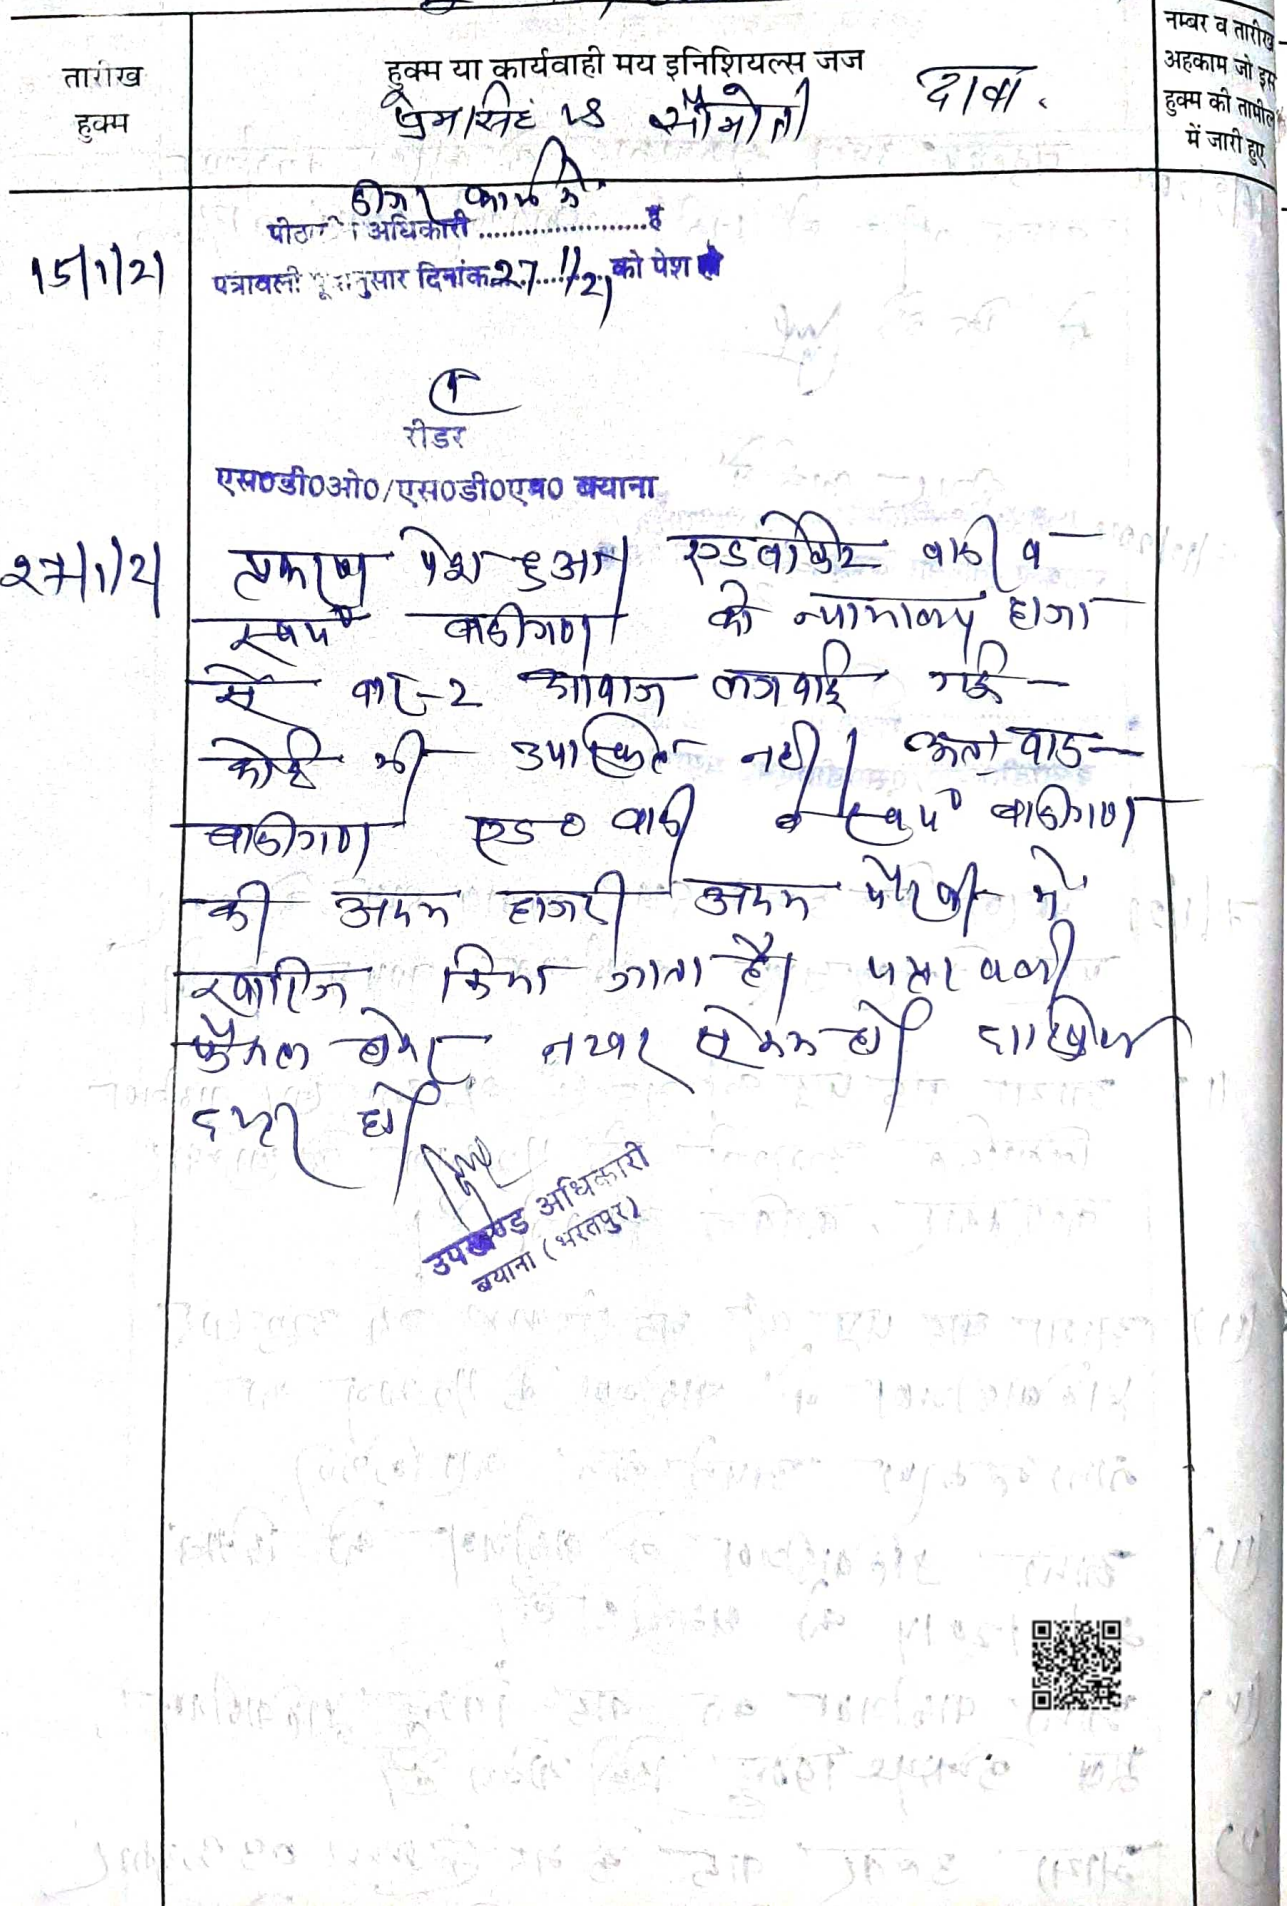 तारीख
हुक्म
हुक्म या कार्यवाही मय इनिशियल्स जज
प्रेमसिंह VS दावा.
नम्बर व तारीख
अहकाम जो इस
हुक्म की तामील
में जारी हुए
पीठासीन अधिकारी ........................है
15/1/21 पत्रावली पूर्वानुसार दिनांक 27/1/21 को पेश हो
रीडर
एस०डी०ओ०/एस०डी०एम० बयाना
27/1/21 प्रकरण पेश हुआ। एडवोकेट वादी व
स्वयं वादीगण को न्यायालय हाजा
से बार-2 आवाज लगवाई गई
कोई भी उपस्थित नहीं। अतः वाद
वादीगण एड० वादी व स्वयं वादीगण
की अदम हाजरी अदम पैरवी में
खारिज किया जाता है। पत्रावली
फैसल शुमार नम्बर से कम हो। दाखिल
दफ्तर हो।
उपखण्ड अधिकारी
बयाना (भरतपुर)